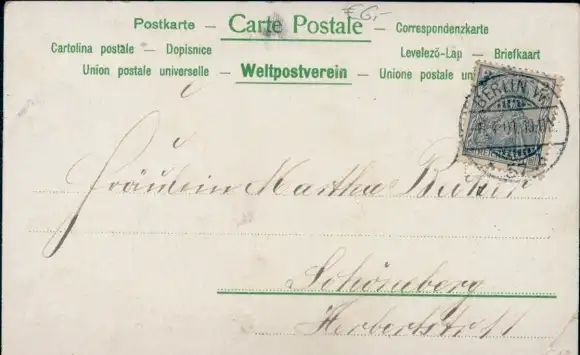 € 6,-
Postkarte — Carte Postale — Correspondenzkarte
Cartolina postale — Dopisnice Levelező-Lap — Briefkaart
Union postale universelle — Weltpostverein — Unione postale un
BERLIN W.
57
Fräulein Martha
Schöneberg
Herbertstr. 11